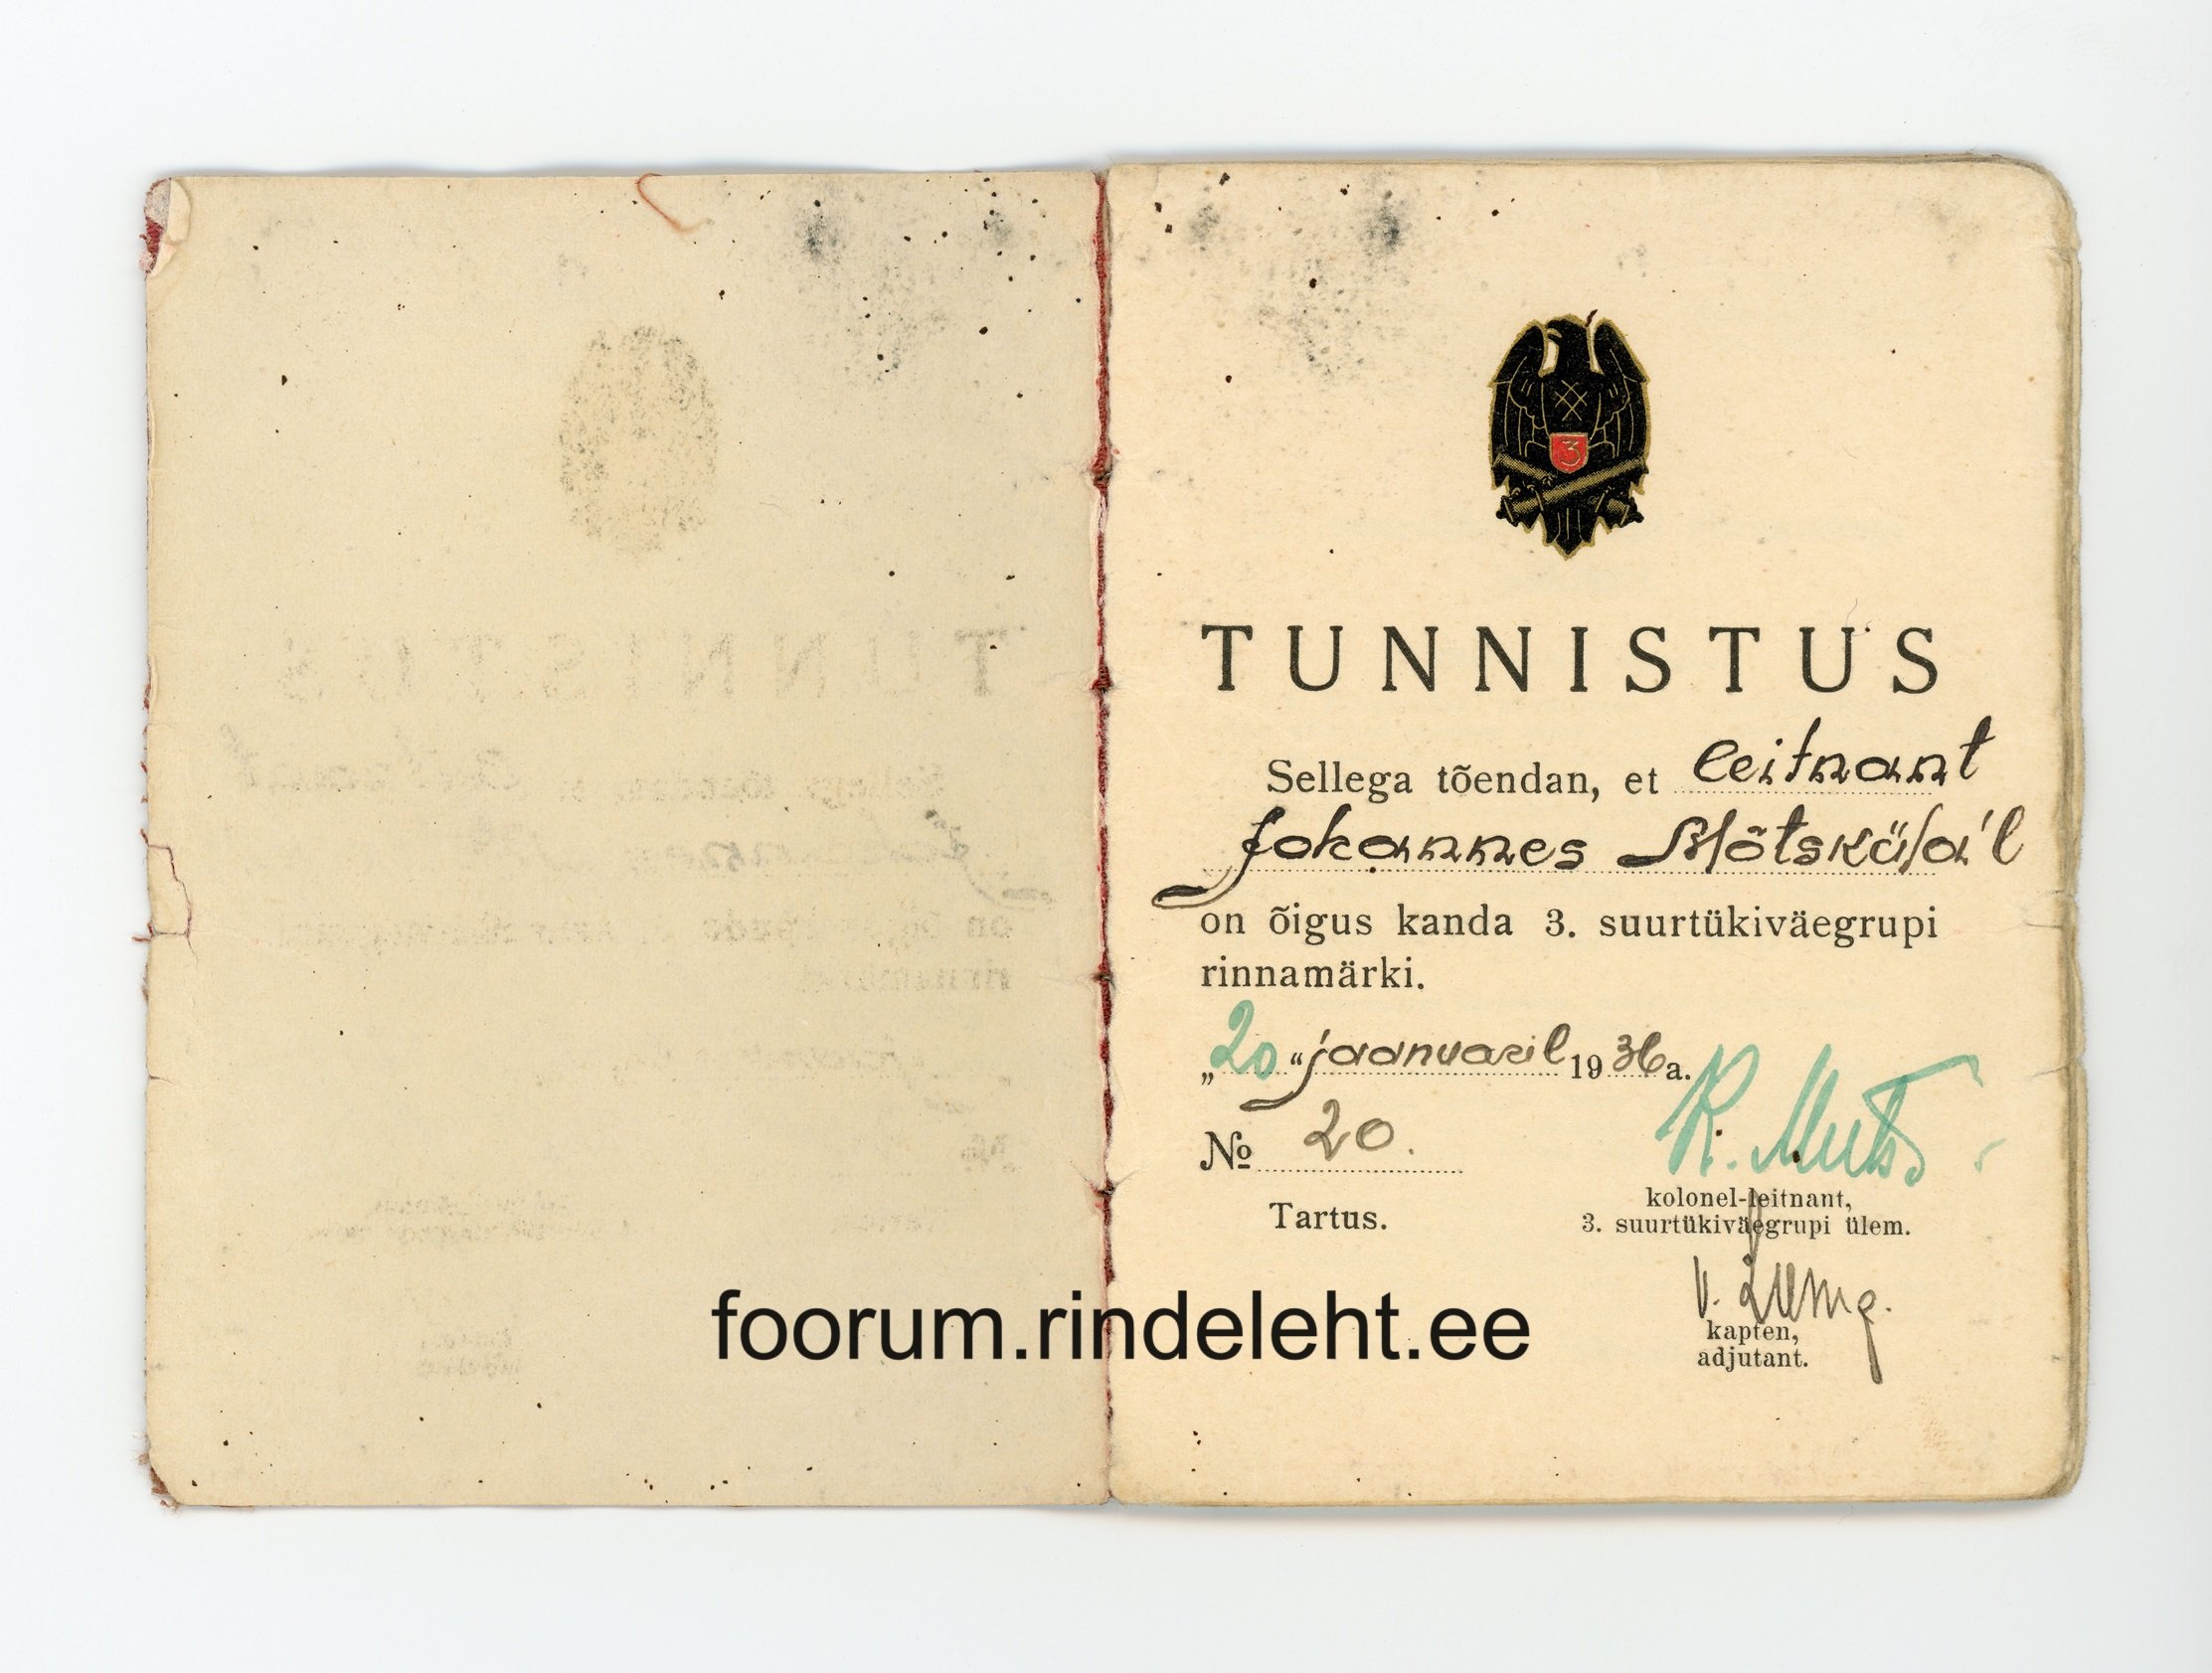 3
TUNNISTUS
Sellega tõendan, et leitnant
Johannes Mõtsküla'l
on õigus kanda 3. suurtükiväegrupi
rinnamärki.
„20“ jaanuaril 1936 a.
№ 20.
Tartus.
kolonel-leitnant,
3. suurtükiväegrupi ülem.
kapten,
adjutant.
foorum.rindeleht.ee